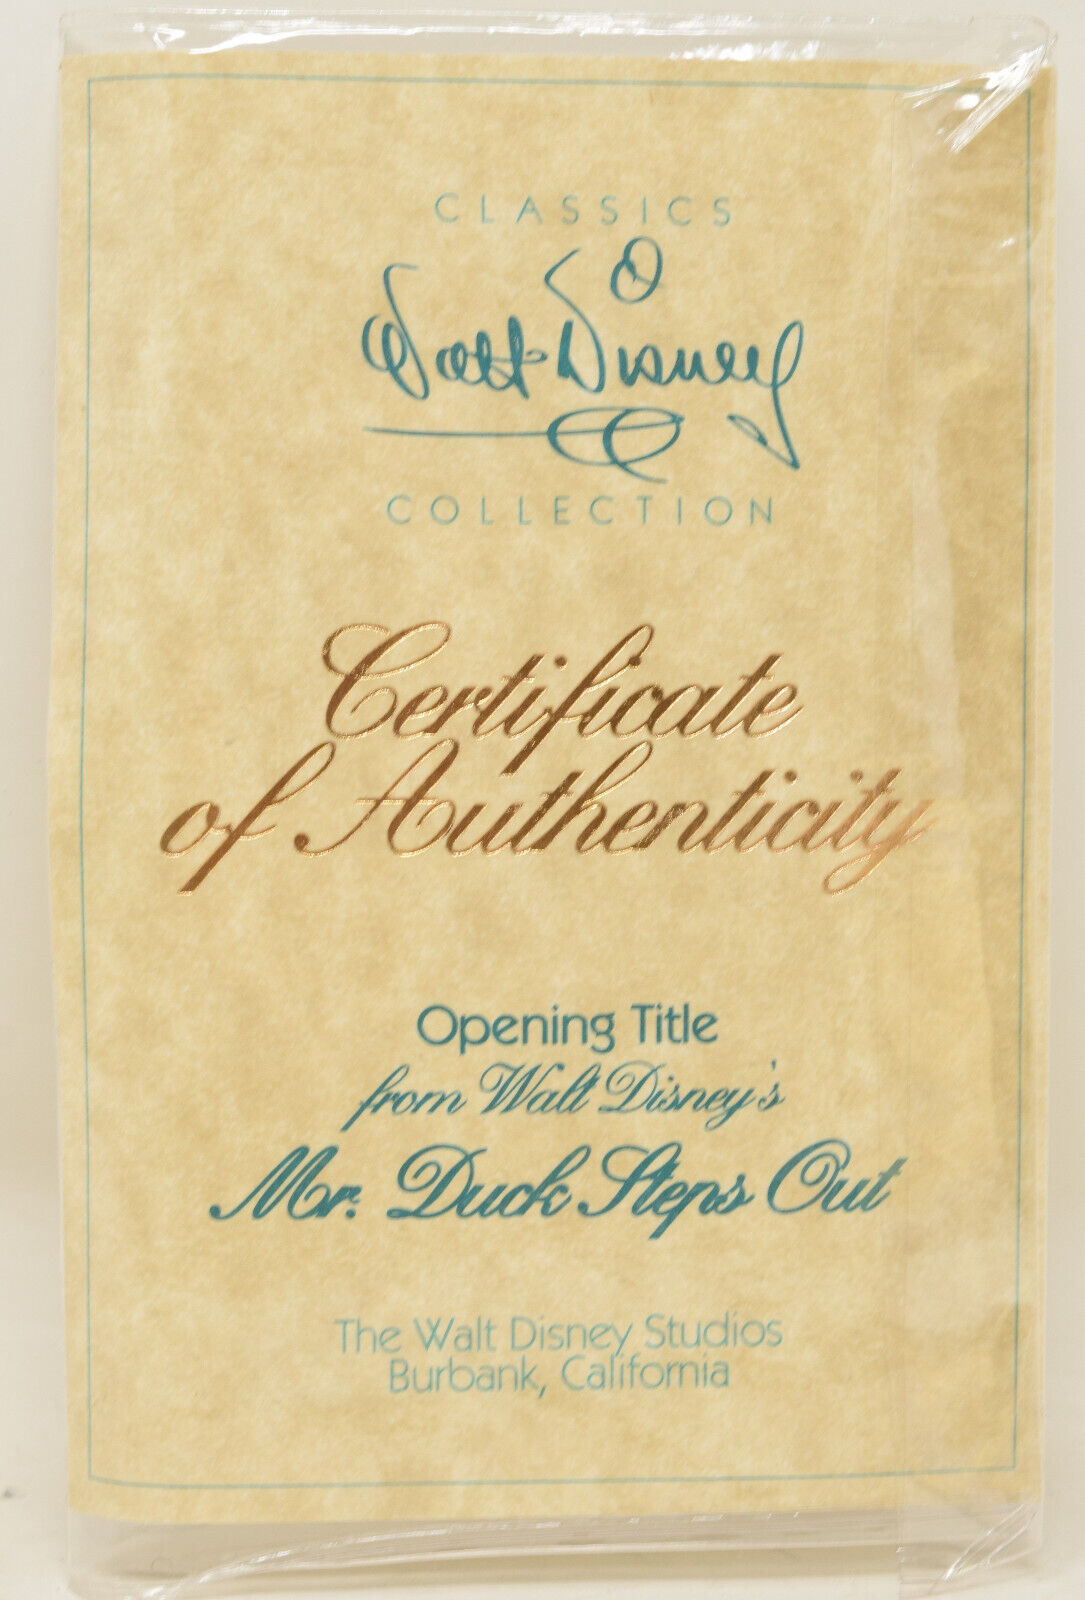 CLASSICS
Walt Disney
COLLECTION
Certificate
of Authenticity
Opening Title
from Walt Disney's
Mr. Duck Steps Out
The Walt Disney Studios
Burbank, California